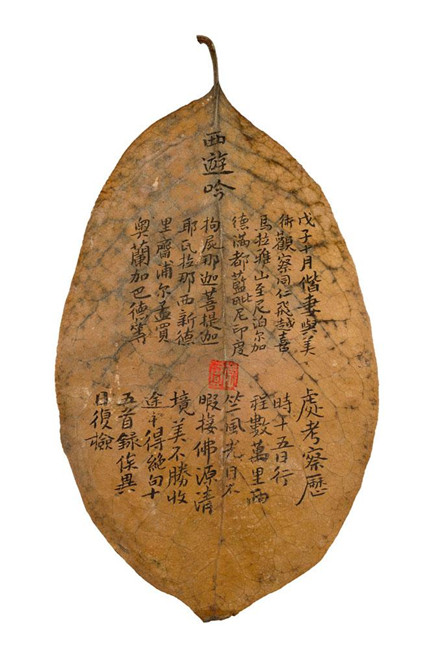 西遊吟
戊子十月偕妻與美
術觀察同仁飛越喜
馬拉雅山至尼泊尔加
德滿都藍毗尼印度
拘屍那迦菩提加
耶瓦拉那西新德
里齋浦尔孟買
奧蘭加巴德等
處考察歷
時十五日行
程數萬里西
竺風光目不
暇接佛源清
境美不勝收
途中得絕句十
五首錄俟異
日復檢